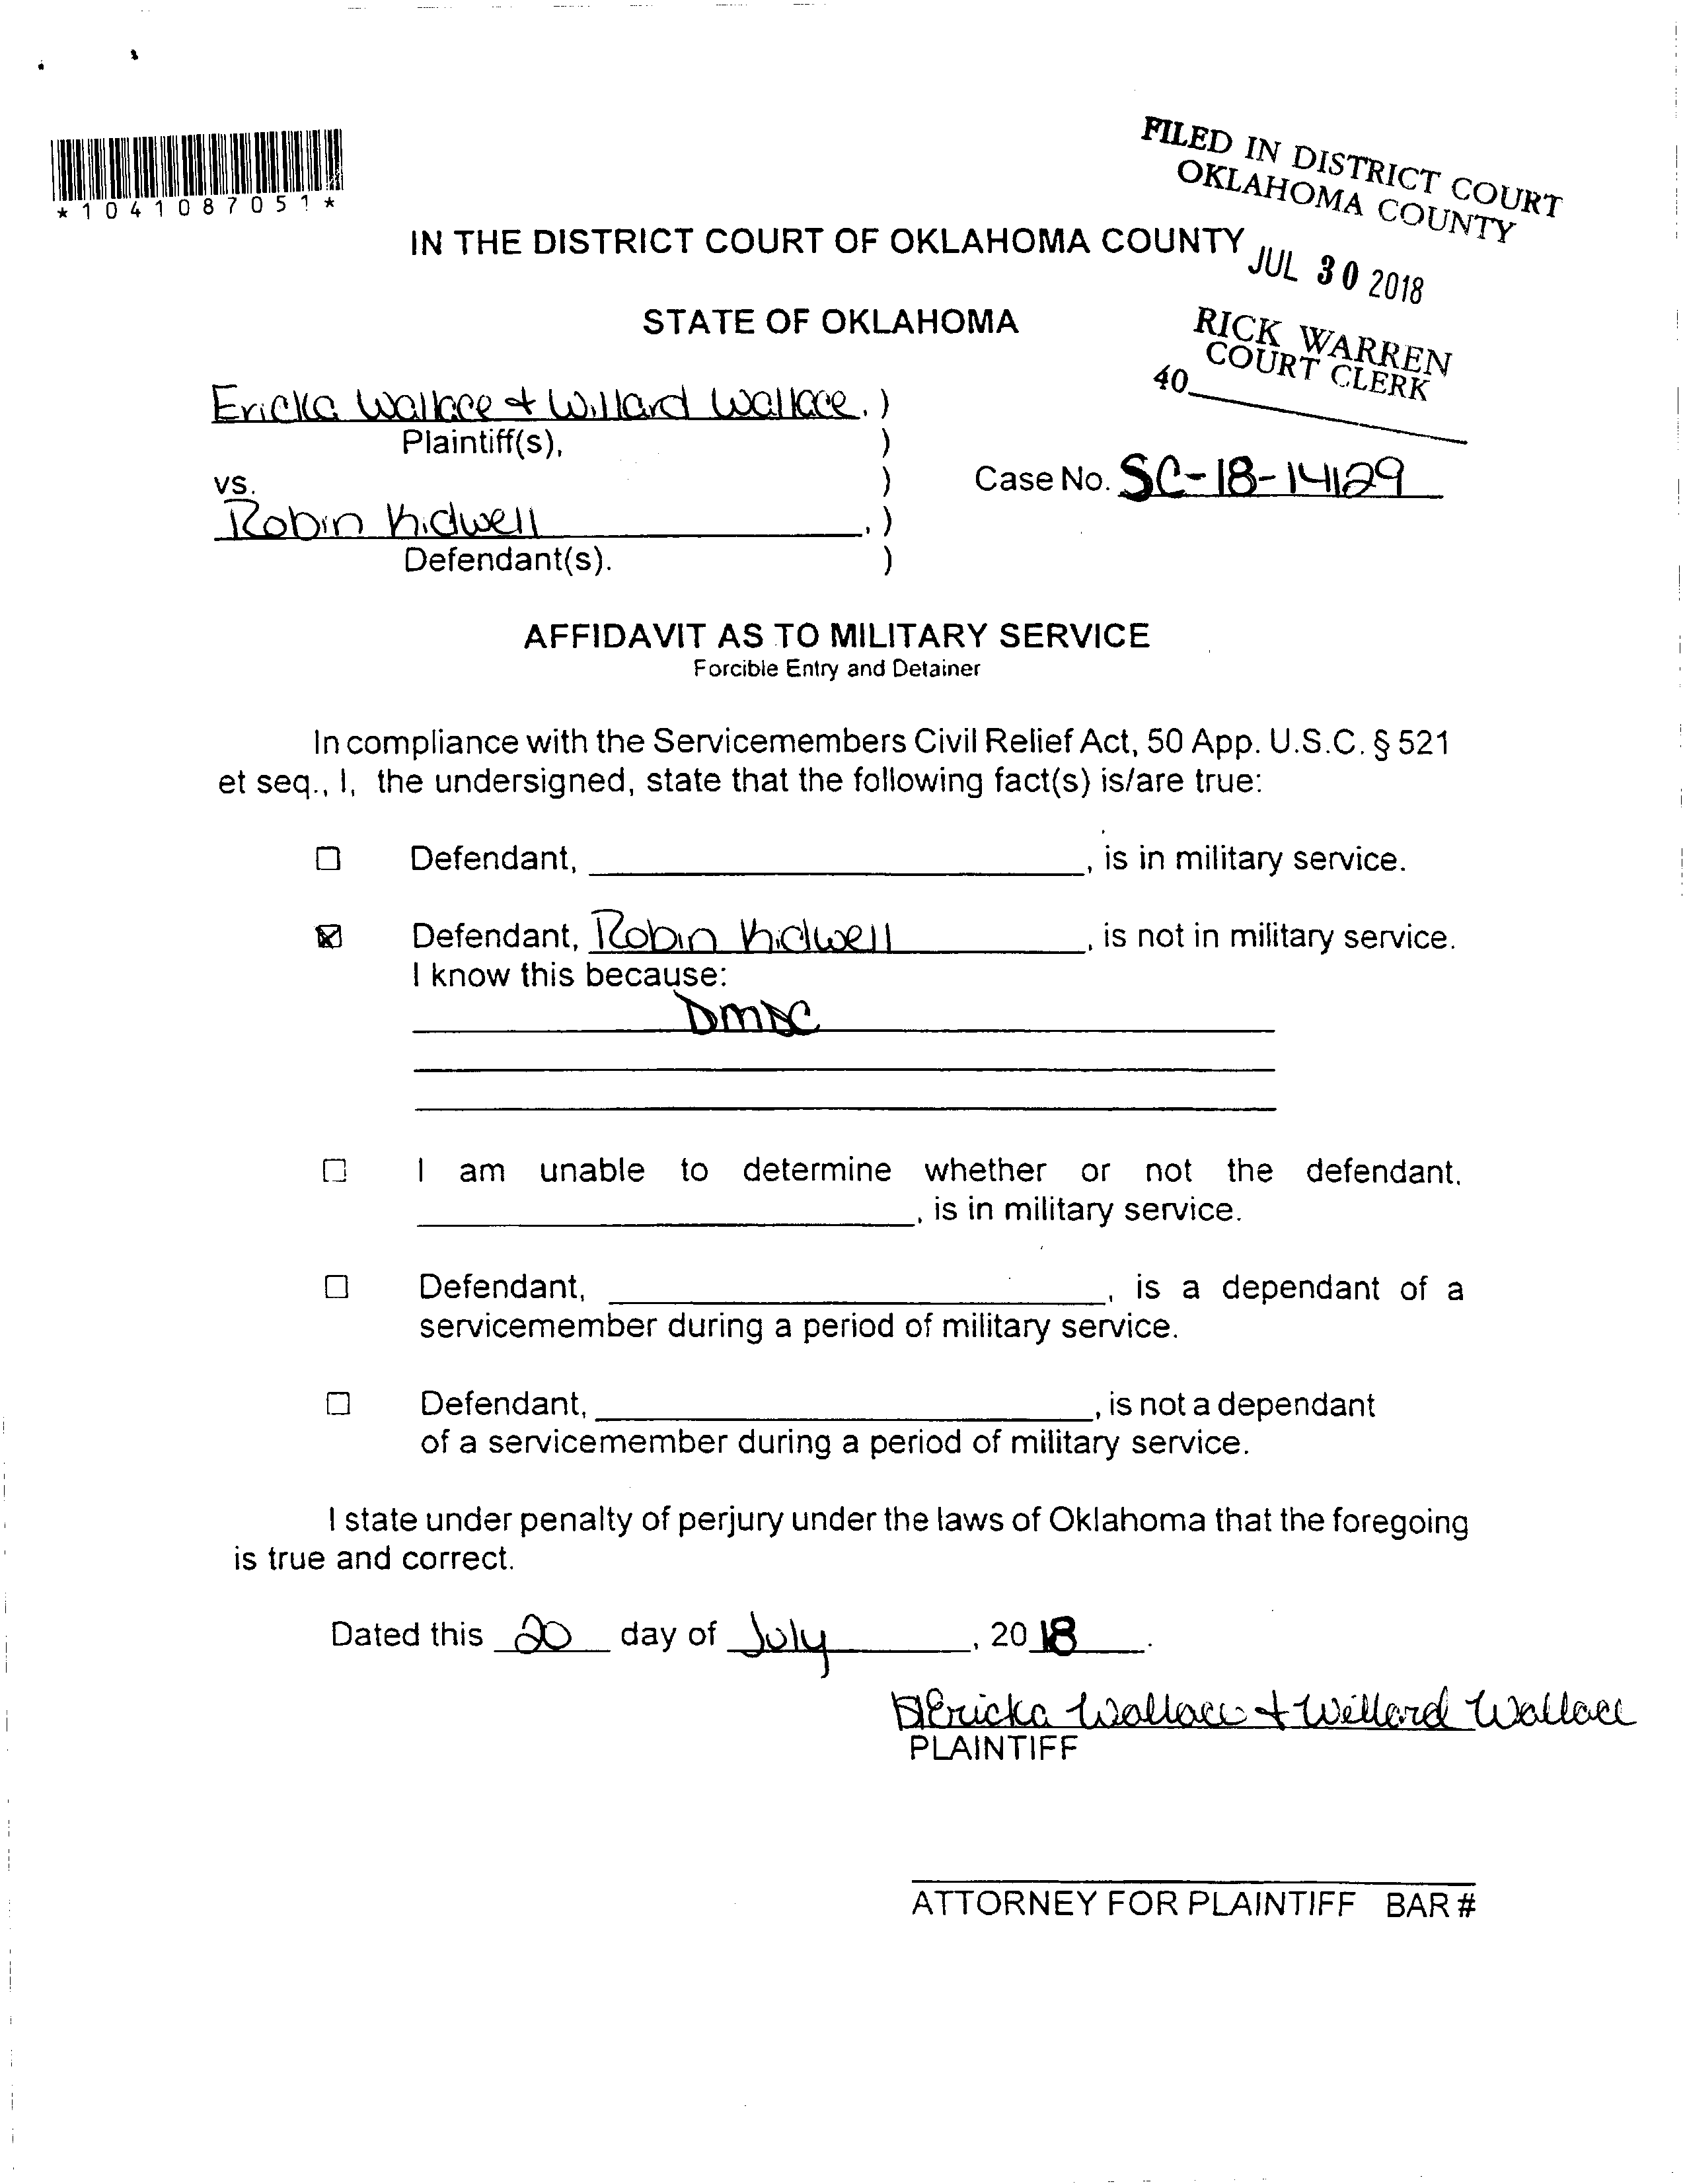 *1041087051*
FILED IN DISTRICT COURT
OKLAHOMA COUNTY
JUL 30 2018
RICK WARREN
COURT CLERK
40
IN THE DISTRICT COURT OF OKLAHOMA COUNTY
STATE OF OKLAHOMA
Ericka Wallace + Willard Wallace, )
Plaintiff(s), )
vs. ) Case No. SC-18-14129
Robin Kidwell, )
Defendant(s). )
AFFIDAVIT AS TO MILITARY SERVICE
Forcible Entry and Detainer
In compliance with the Servicemembers Civil Relief Act, 50 App. U.S.C. § 521
et seq., I, the undersigned, state that the following fact(s) is/are true:
☐ Defendant, ____________________, is in military service.
☒ Defendant, Robin Kidwell, is not in military service.
I know this because:
DMDC
☐ I am unable to determine whether or not the defendant,
____________________, is in military service.
☐ Defendant, ____________________, is a dependant of a
servicemember during a period of military service.
☐ Defendant, ____________________, is not a dependant
of a servicemember during a period of military service.
I state under penalty of perjury under the laws of Oklahoma that the foregoing
is true and correct.
Dated this 20 day of July, 2018.
Ericka Wallace + Willard Wallace
PLAINTIFF
ATTORNEY FOR PLAINTIFF BAR #